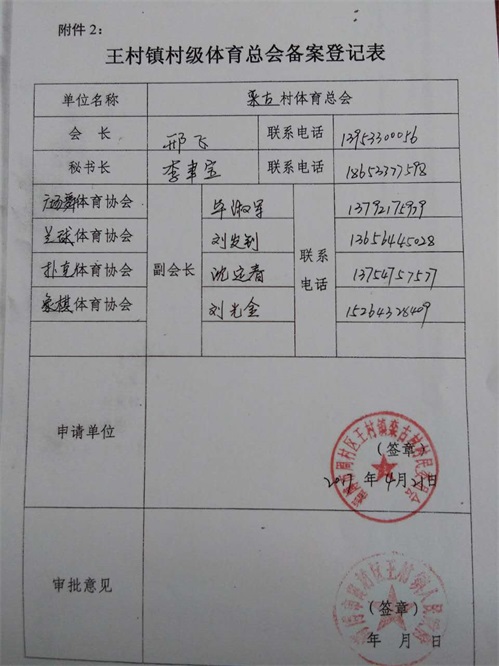 附件2：
王村镇村级体育总会备案登记表
单位名称 栾古村体育总会
会长 邢飞 联系电话 13953300056
秘书长 李聿宝 联系电话 18653377598
广场舞体育协会 毕淑军 13792175939
兰球体育协会 刘发钊 13656445028
扑克体育协会 副会长 沈延春 联系电话 13754757577
象棋体育协会 刘光金 15264328409
申请单位
（签章）
2017年4月21日
审批意见
（签章）
年 月 日